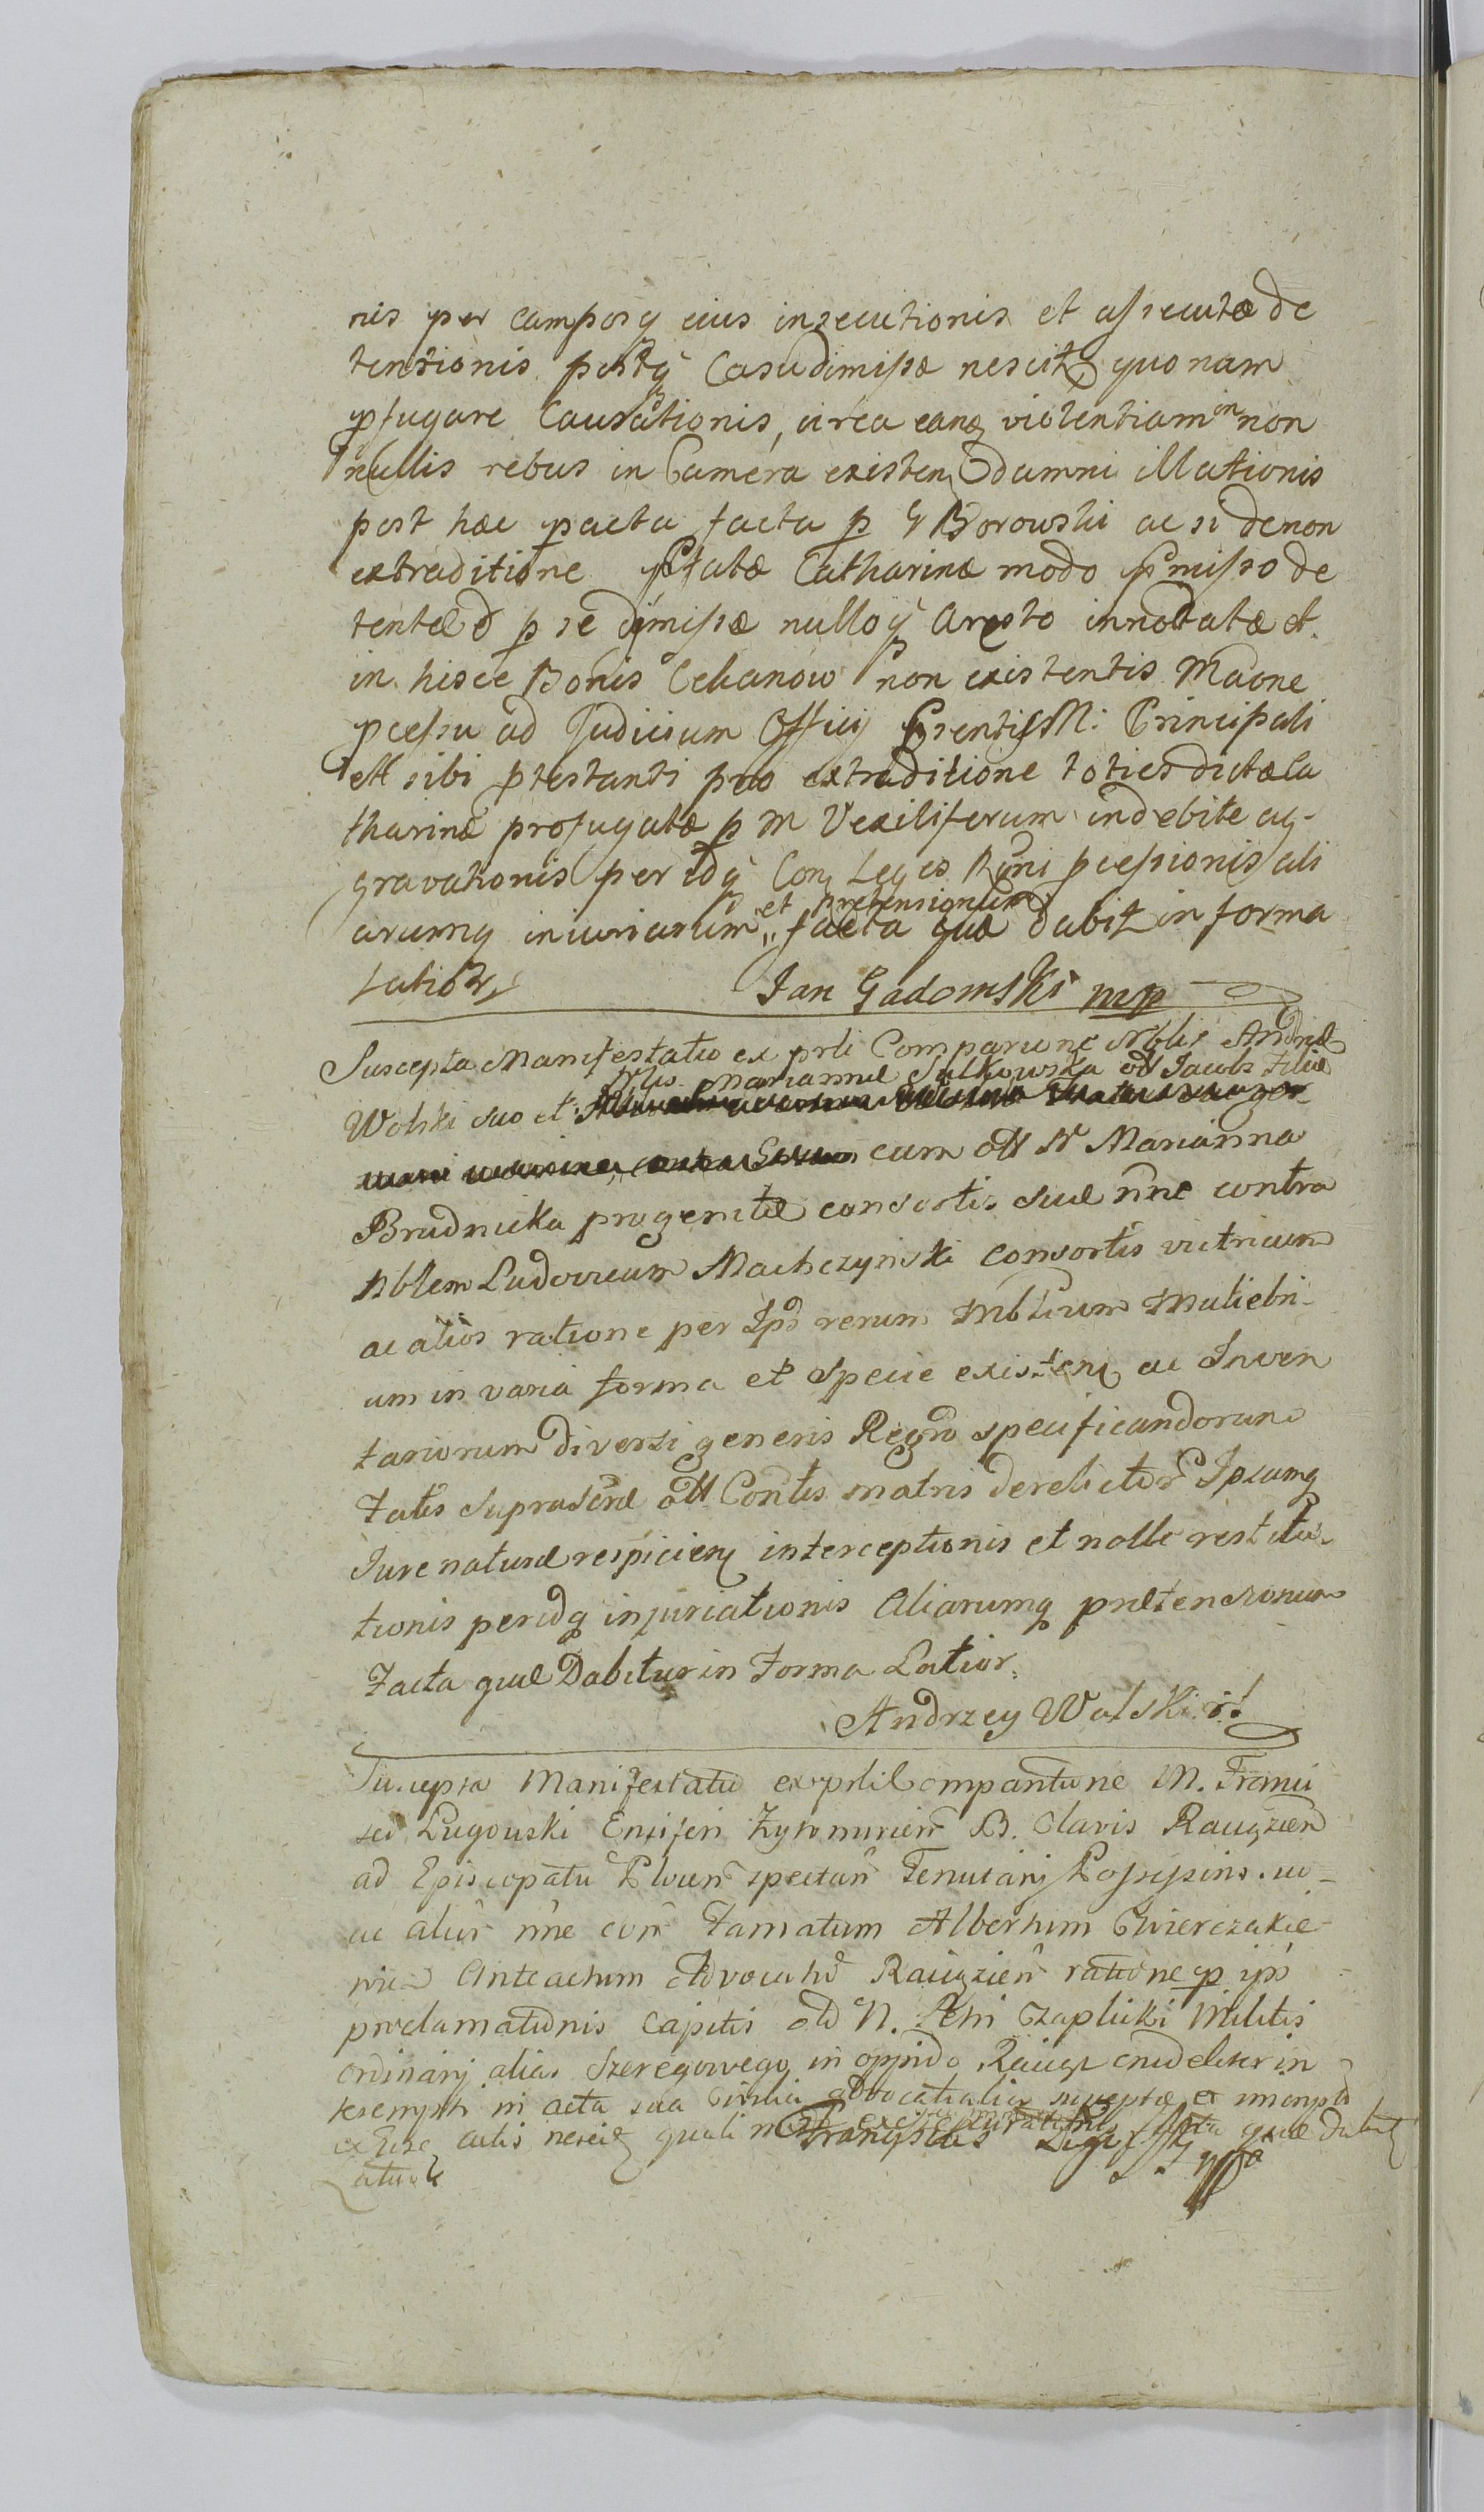 nis per camposq eius insecutionis et assecutæ de
tentionis postq Casu dimissæ nescitr quonam
pfugare Causationis, circa eanq violentiam in non
nullis rebus in Camera existen damni illationis
post hæc pacta facta p G Borowski ac si de non
extraditione Pfatæ Catharinæ modo Pmisso de
tentæ d p se dimissæ nulloq Aresto innodatæ et
in hisce Bonis Cekanow non existentis Maone
pcessu ad Judicium Officij Prentis M: Principali
ett sibi ptestanti pro extraditione toties dictæ Ca
tharinæ profugatæ p M Vexiliferum indebite ag-
gravationis per idq Con Leges Rgni pcessionis ali
arumq iniuriarum et pretensionum facta quæ dabitr in forma
latiori
Jan Gadomski mp
Suscepta Manifestatio ex prli Comparione Nblis Andreæ
Wolski suo et Nblis Mariannæ Sulkowska olt Jacobi Filiæ
cum olt N Marianna
Brudnicka progenitæ consortis suæ nne contra
Nblem Ludovicum Machczynski consortis vitricum
ac alios ratione per Ips rerum Mblium Muliebri-
um in varia forma et specie existenq ac Inven
tariorum diversi generis Regro specificandorum
Fatis supra Scræ olt Contis matris derelictor Ipsamq
Jure naturæ respicienq interceptionis et nolle restitu-
tionis peridq injuriationis Aliarumq prætensionum
Facta quæ Dabitur in Forma Latior.
Andrzey Wolski
Suscepta Manifestatio ex prli Compantione M. Franci
sci Lugowski Ensiferi Zytomirien B. Clavis Raciązien
ad Episcopatu Plocen spectan Tenutarij Possessins. suo
ac alior nne con Famatum Albertum Swierczakie
wicz Anteactum Advocatu Raciązien ratione p ips
proclamationis Capitis olt N. Petri Czaplicki Militis
ordinarij alias Szeregowego in oppido Raciąż crudeliter in
terempti in acta sua Civilia advocatialia susceptæ et
ex Esse actis nescitr quali facta quæ Dabitr
Franciscus
Latior